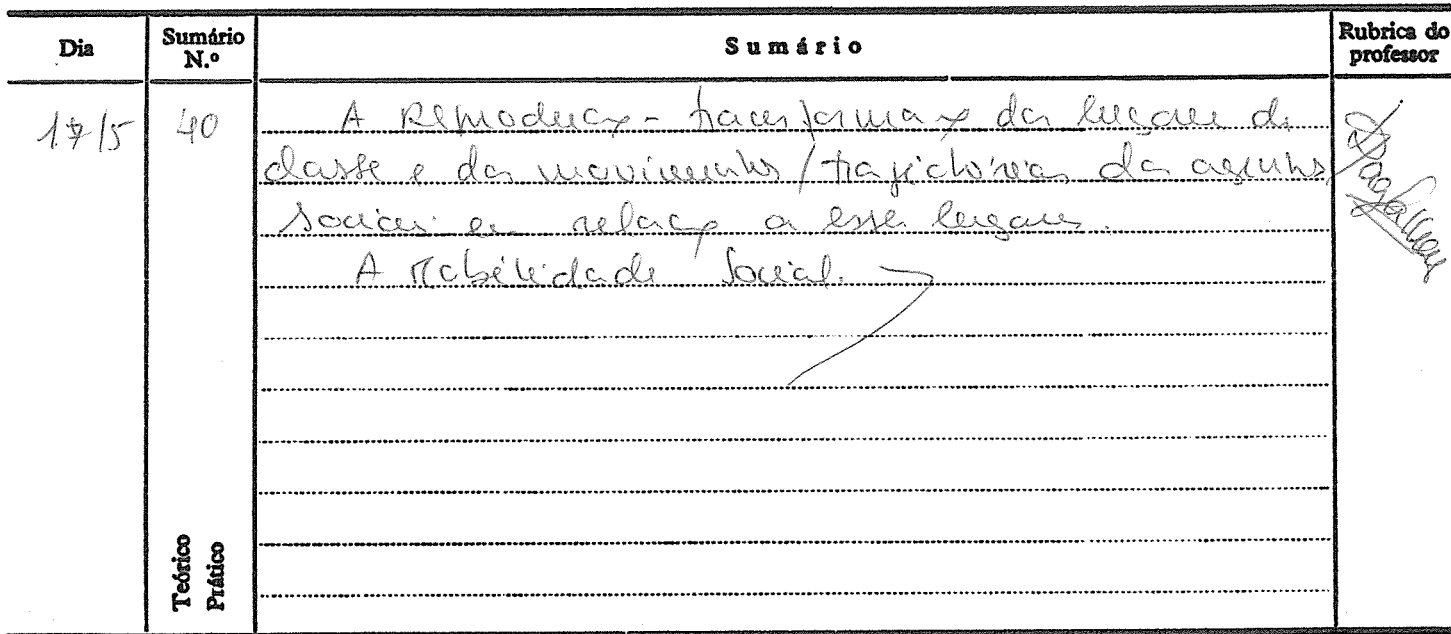 Dia
Sumário N.º
Sumário
Rubrica do professor
17/5
40
A Reprodução-transformação dos lugares de
classe e dos movimentos/trajectórias dos agentes
sociais em relação a esses lugares.
A Mobilidade Social.
Teórico
Prático